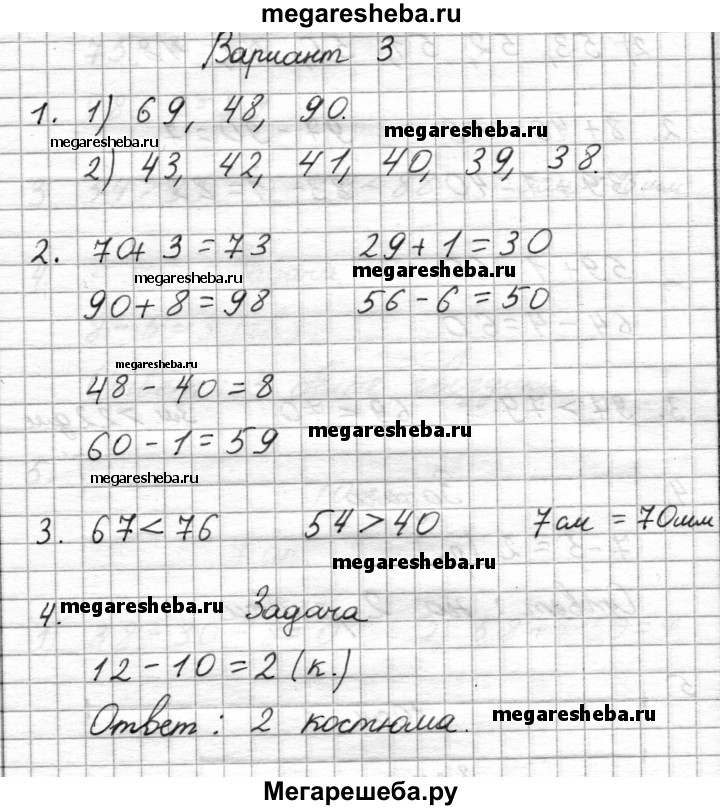 megaresheba.ru
Вариант 3
1. 1) 69, 48, 90.
megaresheba.ru
megaresheba.ru
2) 43, 42, 41, 40, 39, 38.
2. 70+ 3 = 73 29 + 1 = 30
megaresheba.ru
megaresheba.ru
90 + 8 = 98 56 - 6 = 50
megaresheba.ru
48 - 40 = 8
60 - 1 = 59
megaresheba.ru
megaresheba.ru
3. 67 < 76 54 > 40 7 см = 70 мм
megaresheba.ru
4. megaresheba.ru Задача
12 - 10 = 2 (к.)
Ответ: 2 костюма.
megaresheba.ru
Мегарешеба.ру